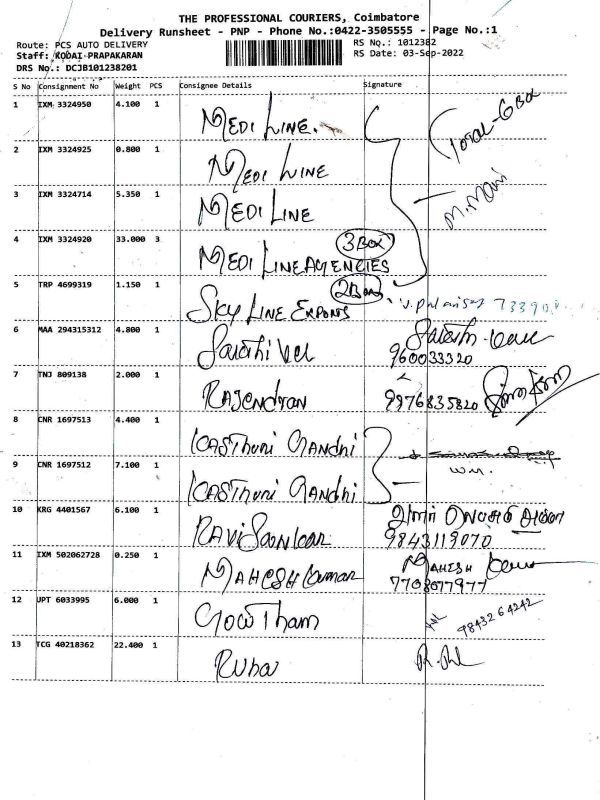 THE PROFESSIONAL COURIERS, Coimbatore
Delivery Runsheet - PNP - Phone No.:0422-3505555 - Page No.:1
Route: PCS AUTO DELIVERY
RS No.: 1012382
Staff: KODAI-PRAPAKARAN
RS Date: 03-Sep-2022
DRS No.: DCJB101238201
S No Consignment No Weight PCS Consignee Details Signature
1 IXM 3324950 4.100 1 MEDI LINE.
Total-6Box
2 IXM 3324925 0.800 1 MEDI LINE
3 IXM 3324714 5.350 1 MEDI LINE
M.Mani
4 IXM 3324920 33.000 3 MEDI LINE AGENCIES 3 Box
5 TRP 4699319 1.150 1 SKY LINE EXPORTS 2Box
6 MAA 294315312 4.800 1 Sarathi
960033320
7 TNJ 809138 2.000 1 RAJENDRAN 9976835820
8 CNR 1697513 4.400 1 KASTHURI GANDHI
9 CNR 1697512 7.100 1 KASTHURI GANDHI
10 KRG 4401567 6.100 1 RAVI Sankar
9843119070
11 IXM 502062728 0.250 1 MAHESH Kumar MAHESH
7708077977
12 UPT 6033995 6.000 1 GOWTHAM 9843264242
13 TCG 40218362 22.400 1 RUBA